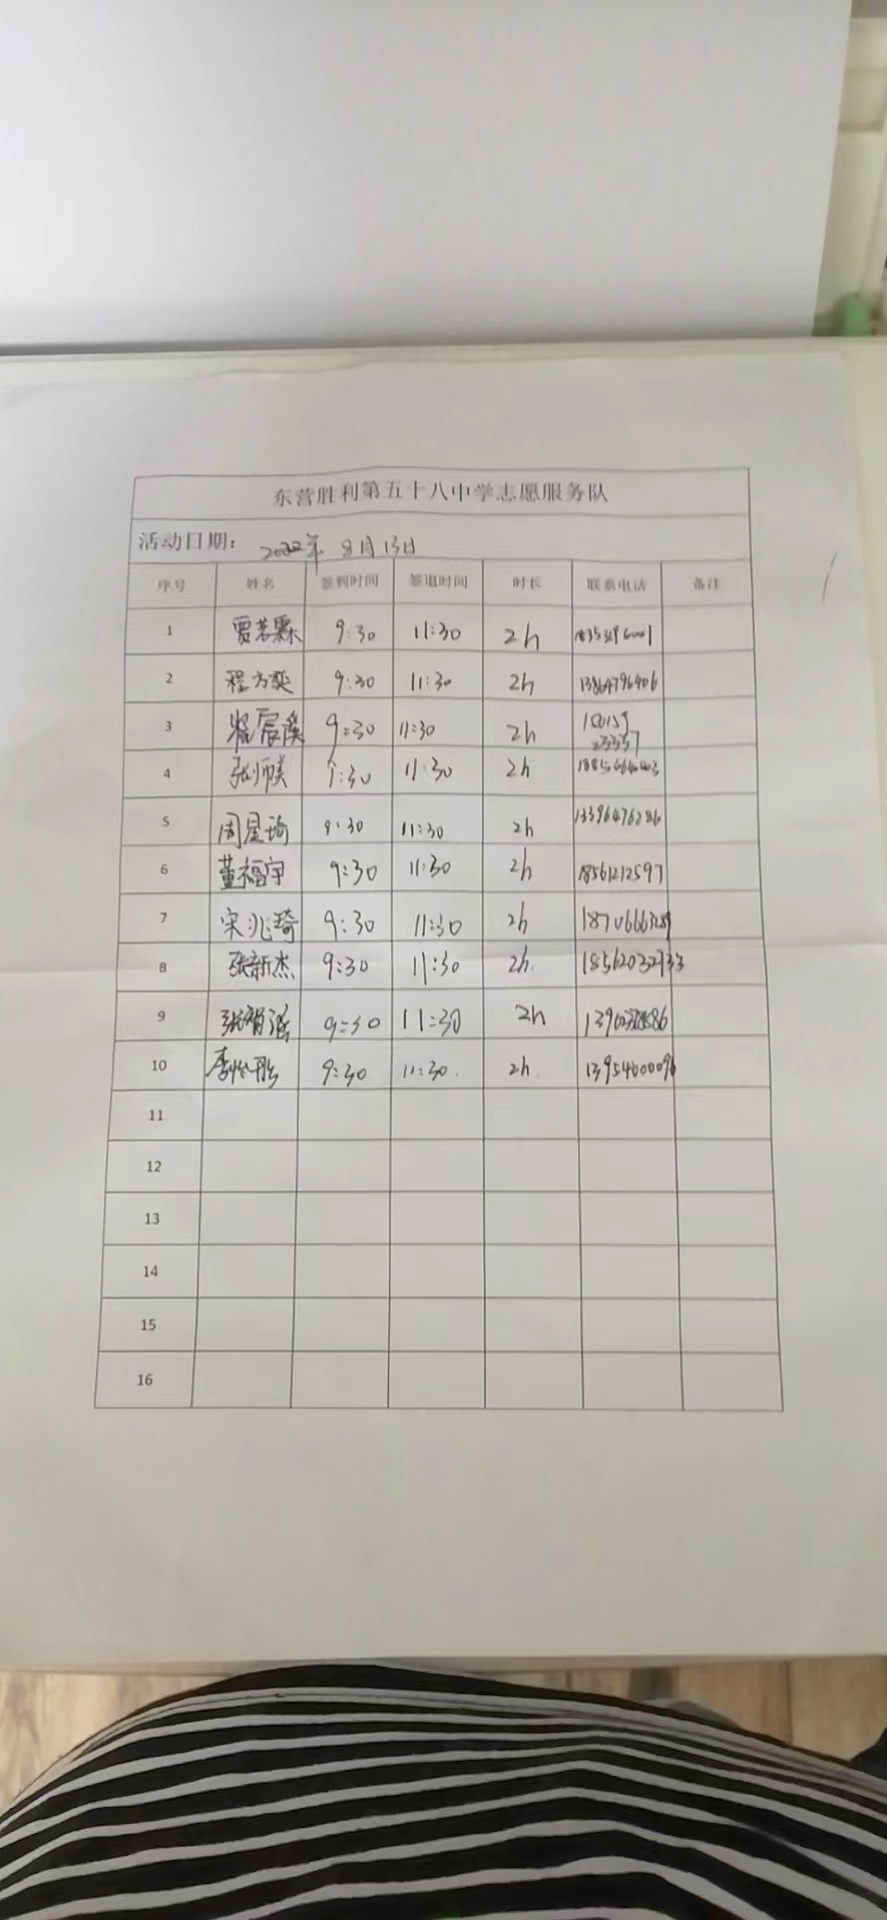 东营胜利第五十八中学志愿服务队
活动日期： 2022年 8月13日
序号 姓名 签到时间 签退时间 时长 联系电话 备注
1 贾若霖 9:30 11:30 2h
2 程方奕 9:30 11:30 2h 13864796406
3 9:30 11:30 2h
4 9:30 11:30 2h
5 周星琦 9:30 11:30 2h 13396476286
6 董福宇 9:30 11:30 2h 18561212597
7 宋兆琦 9:30 11:30 2h
8 张新杰 9:30 11:30 2h. 18562032933
9 9:30 11:30 2h
10 9:30 11:30. 2h. 13954600096
11
12
13
14
15
16